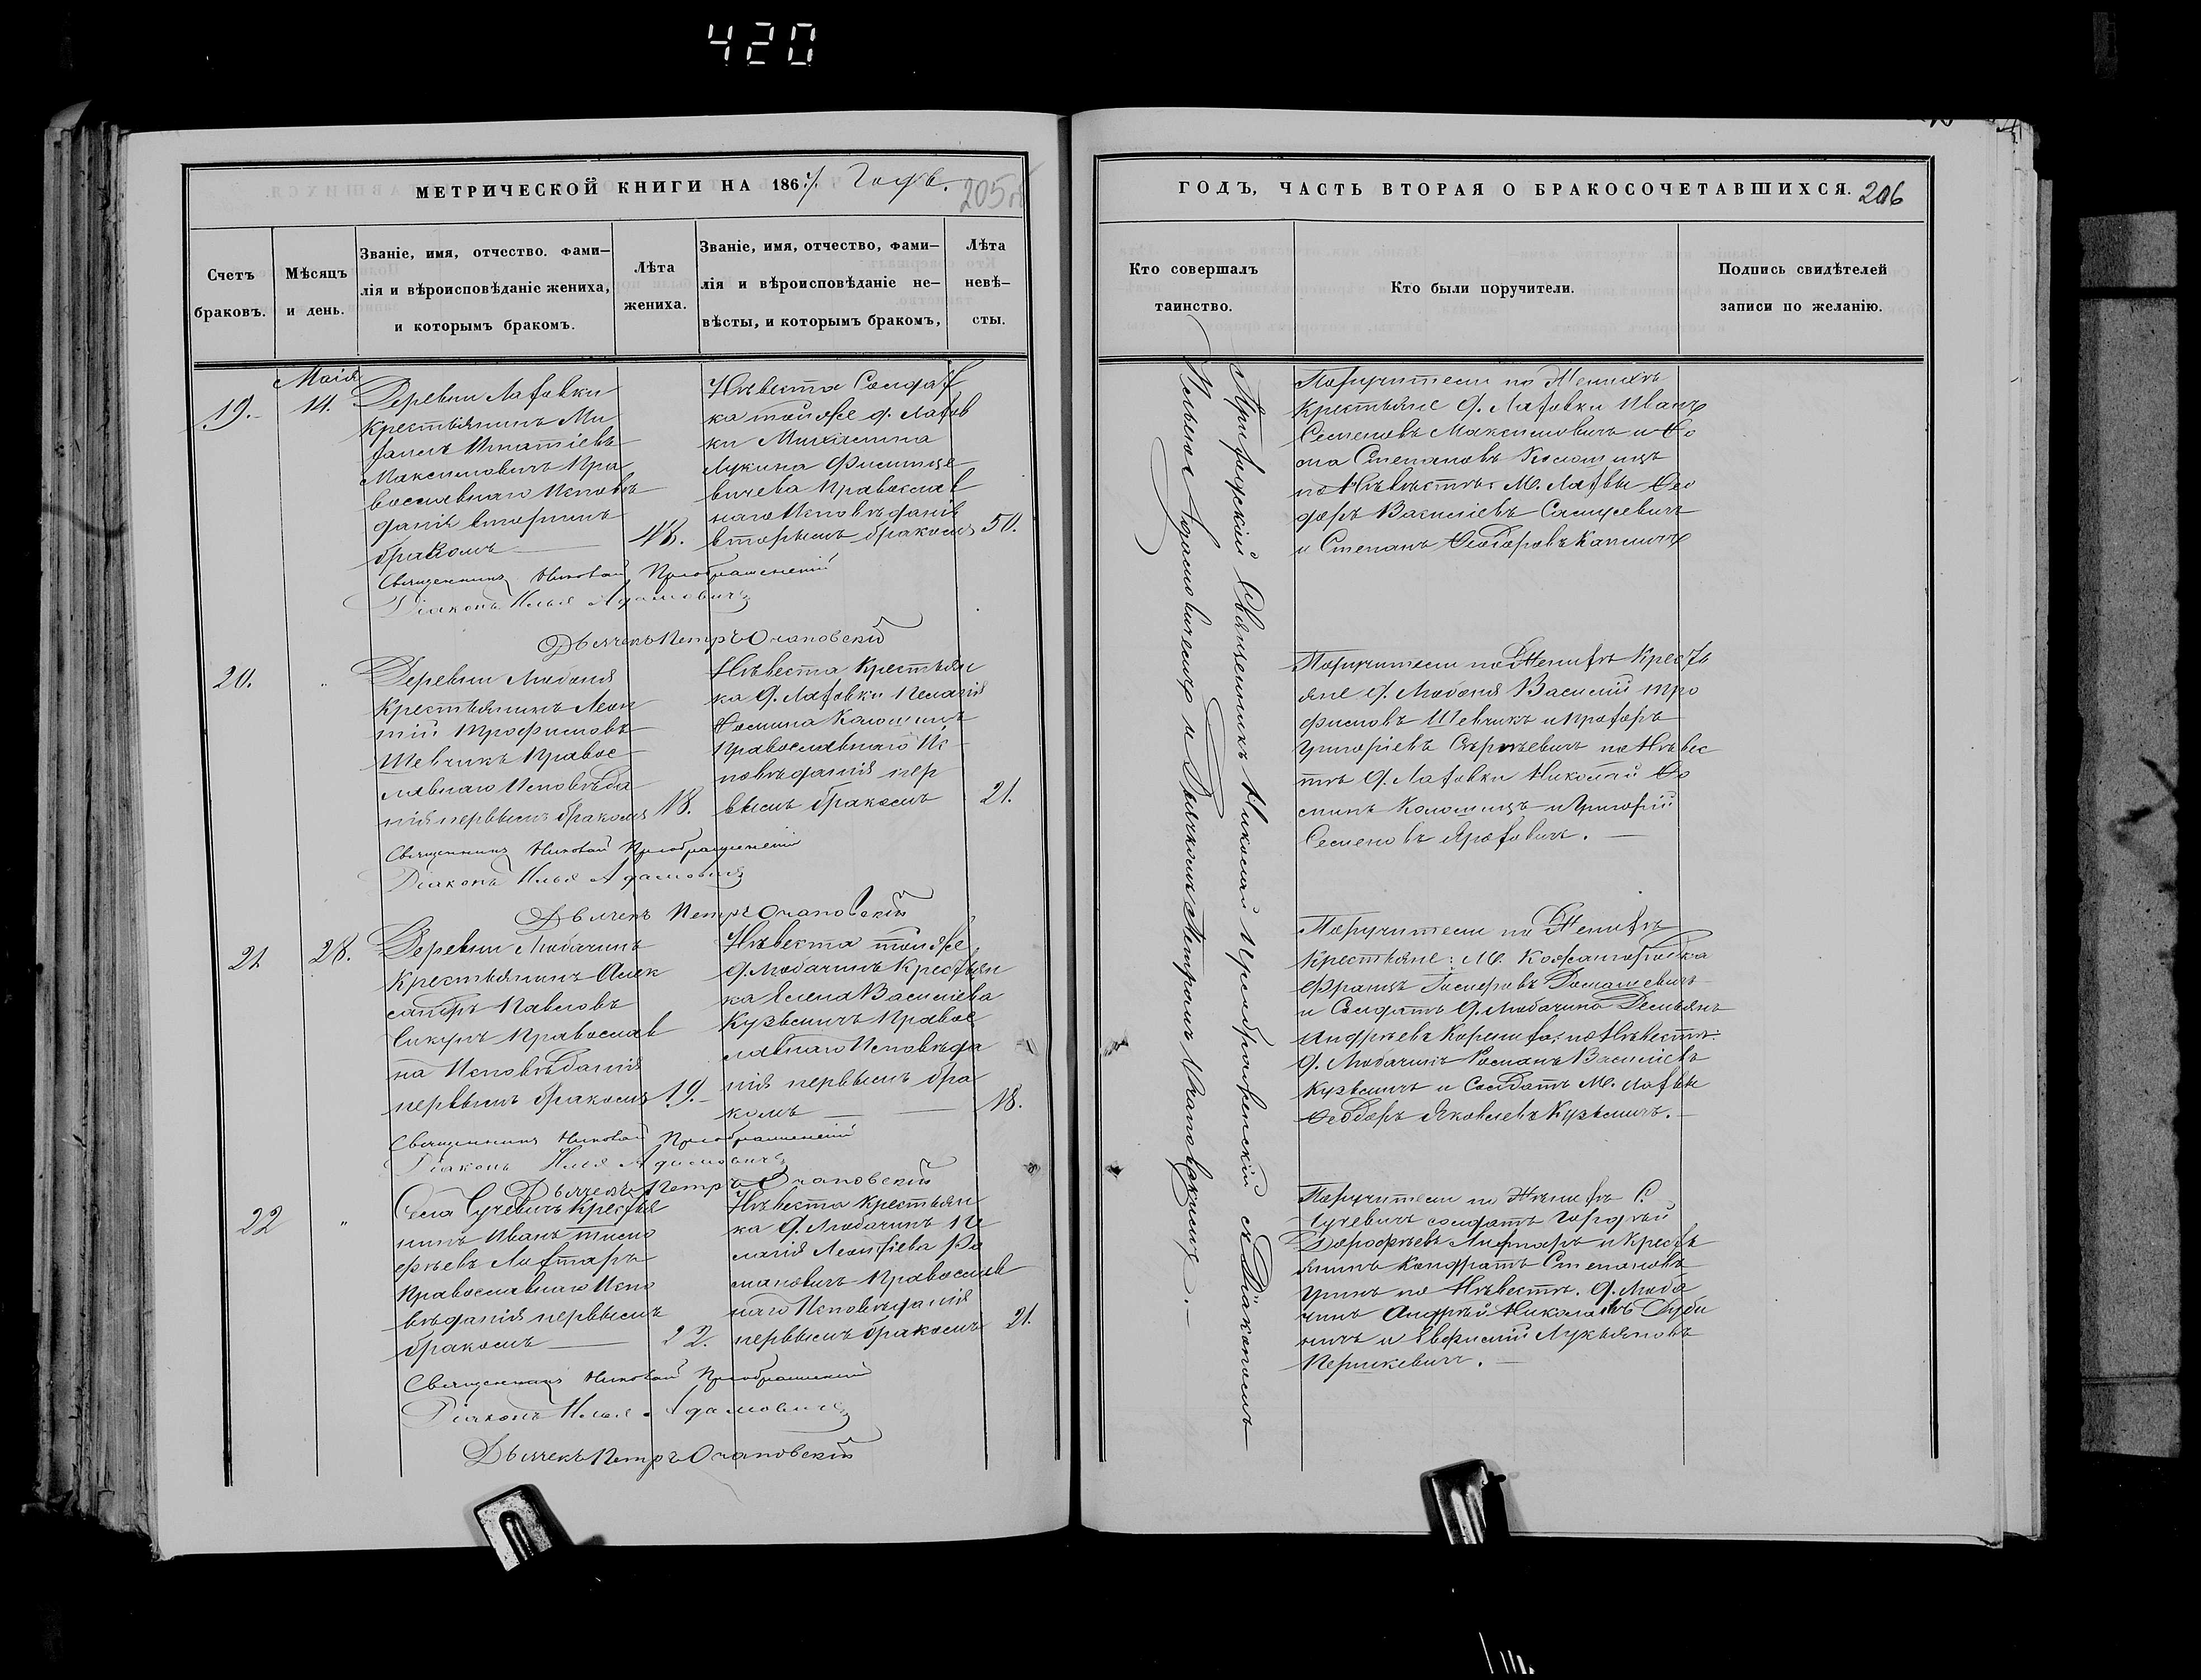 420
МЕТРИЧЕСКОЙ КНИГИ НА 186 Годъ.
205
Счетъ браковъ.
Мѣсяцъ и день.
Званіе, имя, отчество. фами-
лія и вѣроисповѣданіе жениха,
и которымъ бракомъ.
Лѣта жениха.
Званіе, имя, отчество, фами-
лія и вѣроисповѣданіе не-
вѣсты, и которымъ бракомъ,
Лѣта
невѣ-
сты.
Маія
19.
14.
Деревни Лаховки
крестьянинъ Ми
хаилъ Игнатіевъ
Максимовичъ Пра
вославнаго Исповѣ
данія вторымъ
бракомъ
48.
Невѣста Солдат
ка тойже д. Лахов
ки
Лукина
вичева Православ
наго Исповѣданія
вторымъ бракомъ
50.
Священникъ Николай Преображенскій
Діаконъ Илья Адамовичъ
Дьячекъ Петръ Очаповскій
20.
"
Деревни Любоня
Крестьянинъ Леон
тій Трофимовъ
Шевчикъ Правос
лавнаго Исповѣда
нія первымъ бракомъ
18.
Невѣста Крестьян
ка д. Лаховки Пелагія
Ѳомина
Православнаго Ис
повѣданія пер
вымъ бракомъ
21.
Священникъ Николай Преображенскій
Діаконъ Илья Адамовичъ
Дьячекъ Петръ Очаповскій
21
28.
Деревни Любачинъ
Крестьянинъ Алек
сандръ Павловъ
Чикунъ Православ
на Исповѣданія
первымъ бракомъ
19.
Невѣста тойже
д. Любачинъ Крестьян
ка Елена Василіева
Кузьмичъ Правос
лавнаго Исповѣда
нія первымъ бра
комъ
18.
Священникъ Николай Преображенскій
Діаконъ Илья Адамовичъ
Дьячекъ Петръ Очаповскій
22
"
Села Крестья
нинъ Иванъ Тимо
фѣевъ Лихтаръ
Православнаго Испо
вѣданія первымъ
бракомъ
22.
Невѣста Крестьян
ка д. Любачинъ Пе
лагія Леонтіева Ро
мановичъ Православ
наго Исповѣданія
первымъ бракомъ
21.
Священникъ Николай Преображенскій
Діаконъ Илья Адамовичъ
Дьячекъ Петръ Очаповскій
ГОДЪ, ЧАСТЬ ВТОРАЯ О БРАКОСОЧЕТАВШИХСЯ.
206
Кто совершалъ
таинство.
Кто были поручители.
Подпись свидѣтелей
записи по желанію.
Приходскій Священникъ Николай Преображенскій съ Діакономъ
Ильею Адамовичемъ и Дьячкомъ Петромъ Очаповскимъ.
Поручители по Женихѣ
Крестьяне д. Лаховки Иванъ
Семеновъ Максимовичъ и Ѳо
ма Степановъ
по Невѣстѣ: М. Лахвы Ѳео
доръ Василіевъ
и Степанъ Ѳеодоровъ
Поручители по Женихѣ Кресть
яне д. Любоня Василій Тро
фимовъ Шевчикъ и Прохоръ
Григоріевъ Сергѣевичъ по Невѣс
тѣ д. Лаховки Николай Ѳо
минъ и Григорій
Семеновъ Ярохович.
Поручители по Женихѣ
Крестьяне: М. Кожангородка
Францъ Домашевичъ
и Солдатъ д. Любачина Демьянъ
Андрѣевъ по Невѣстѣ:
д. Любачинъ Романъ Василіевъ
Кузьмичъ и Солдатъ М. Лахвы
Ѳеодоръ Яковлевъ Кузьмичъ.
Поручители по Женихѣ С.
солдатъ Гордѣй
Дорофѣевъ Лихтаръ и Кресть
янинъ Кондратъ Степановъ
по Невѣстѣ. д. Люба
чинъ Андрѣй Николаевъ
и Евфимій Лукьяновъ